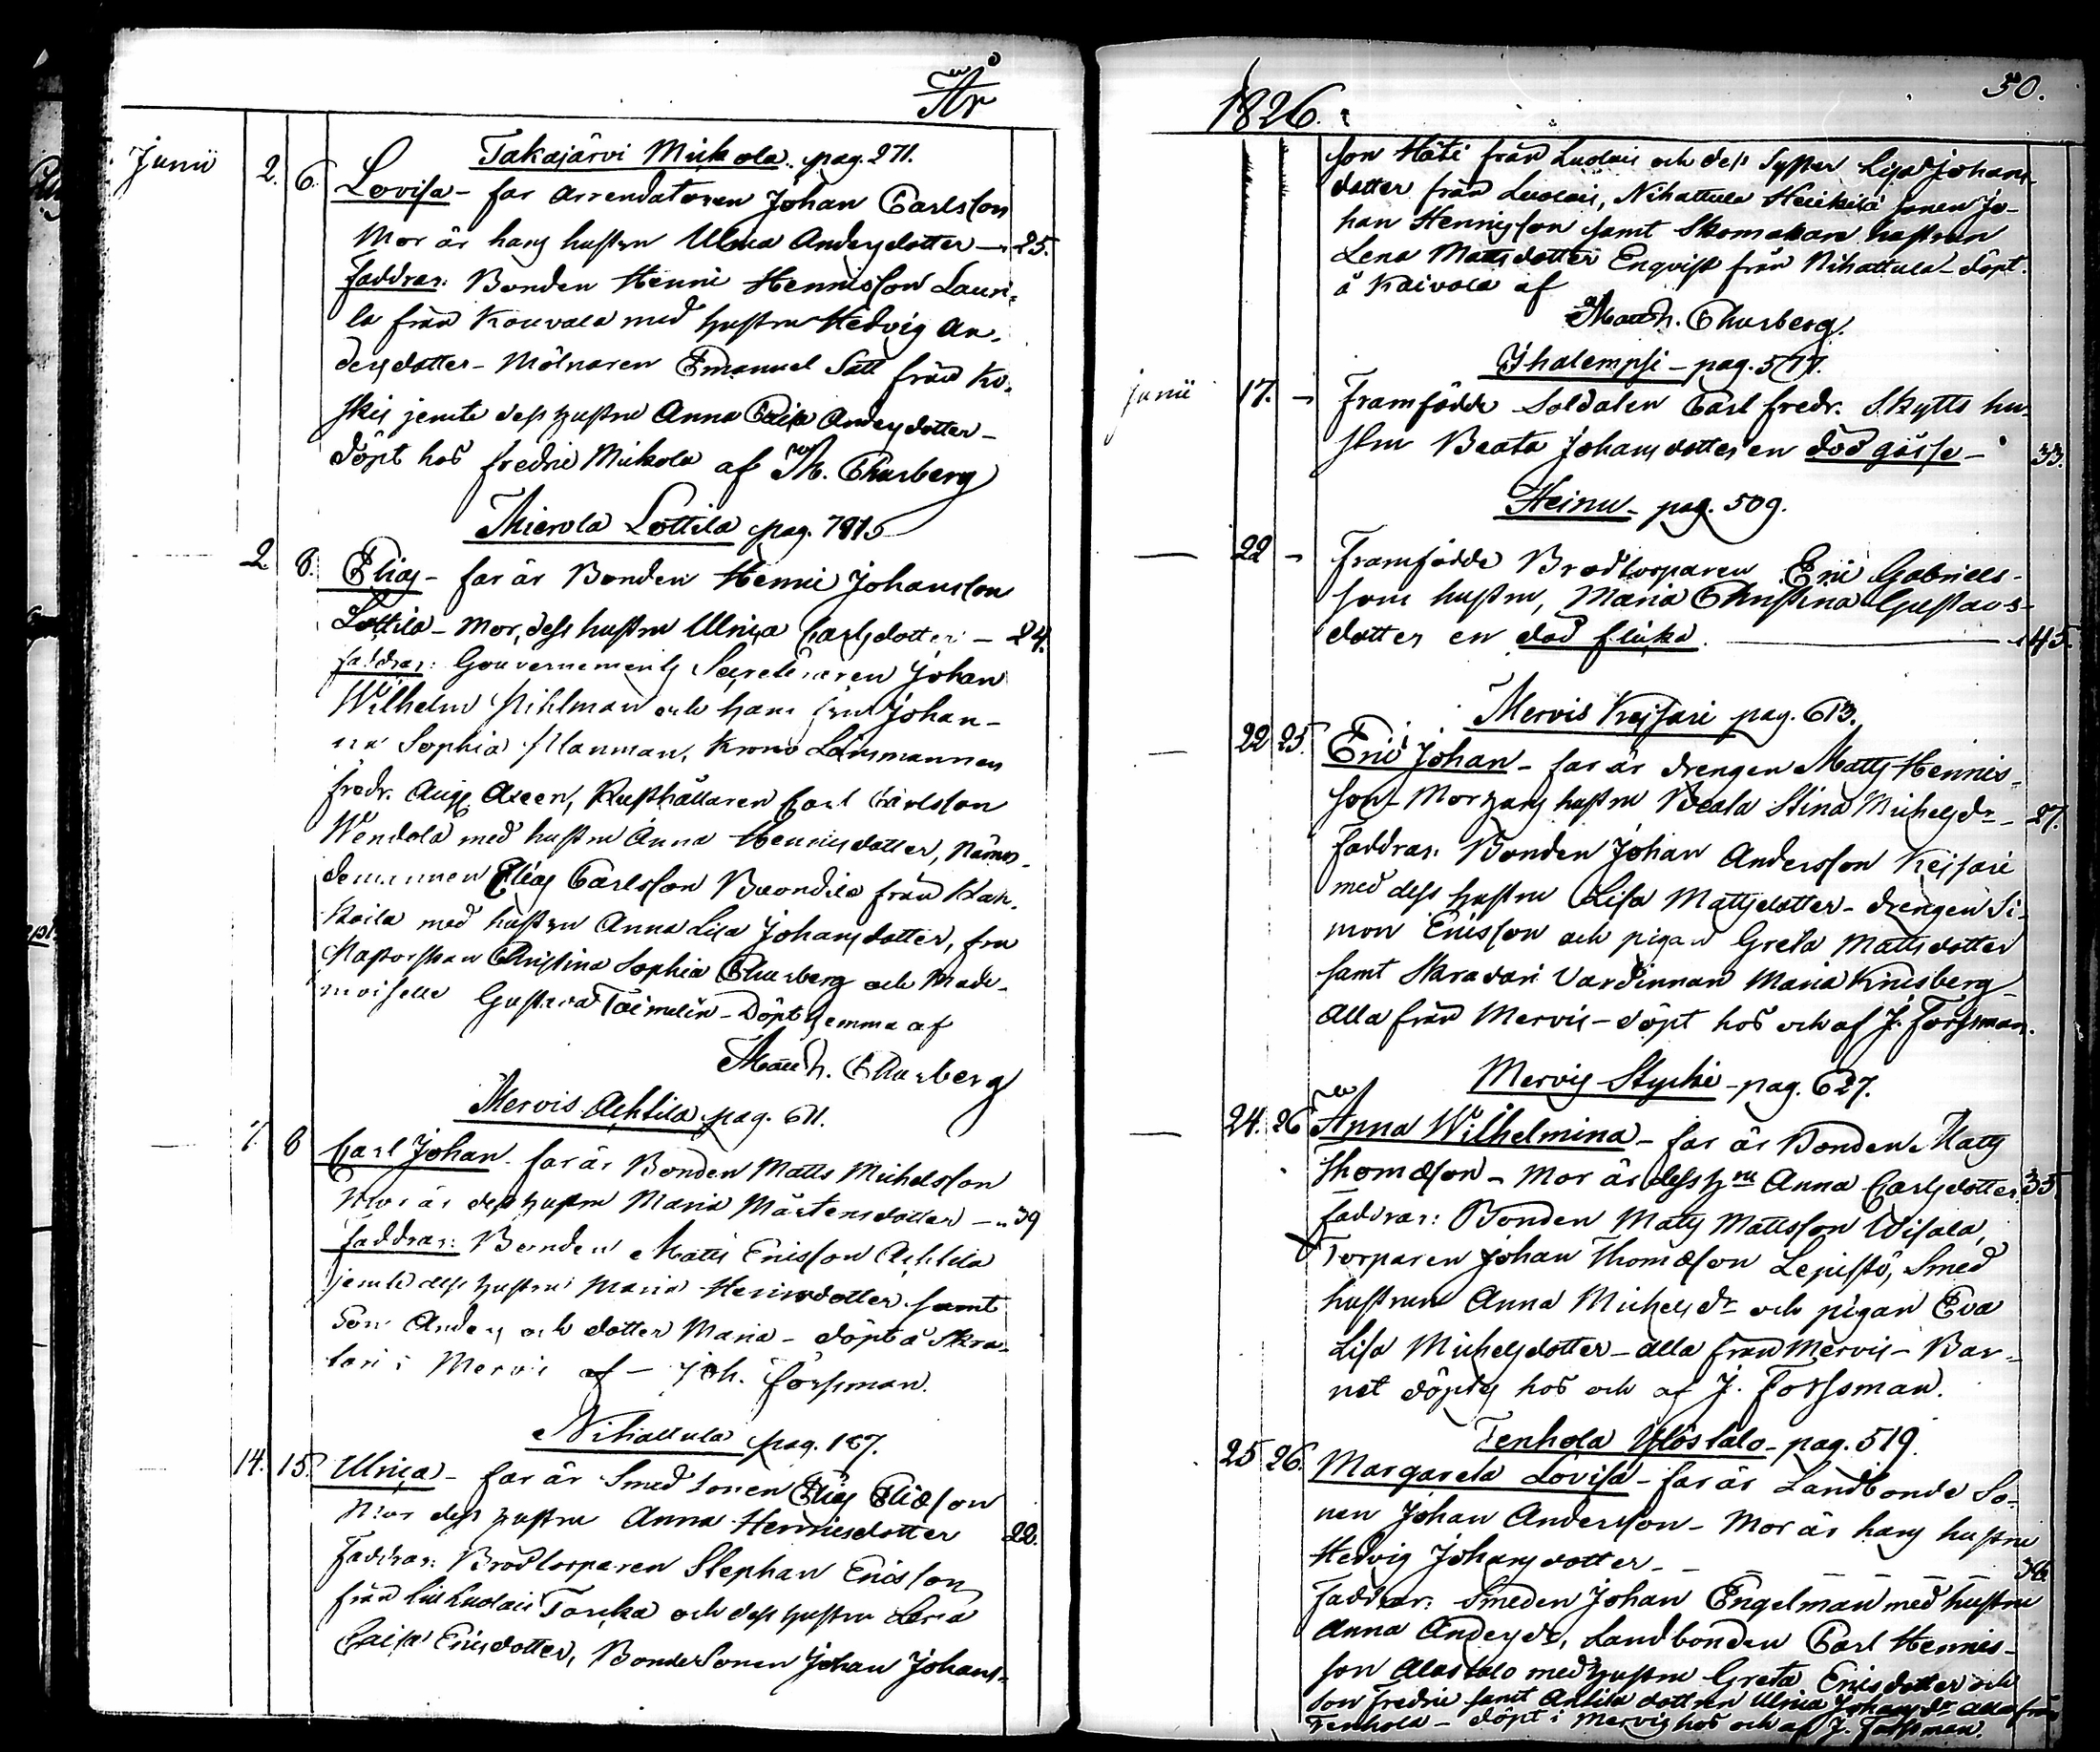 År
Takajärvi Mickola. pag. 271.
Junii 2. 6. Lovisa - far Arrendatoren Johan Carlsson
Mor är hans hustru Ulrica Andersdotter — 25.
Faddrar: Bonden Henric Henricsson Lauri-
la från Kouvala med hustru Hedvig An-
dersdotter - Mölnaren Emanuel Sätt från Ko-
skis jemte dess hustru Anna Caisa Andersdotter -
döpt hos Fredric Mickola af M. Churberg
Mierola Lottila pag. 7
2. 8. Elias - far är Bonden Henric Johansson
Lottila - Mor, dess hustru Ulrica Carlsdotter - 24.
Faddrar: Gouvernements Secreteraren Johan
Wilhelm Kihlman och hans fru Johan-
na Sophia Flanman, Krono Länsmannen
Fredr. Aug. Axeen, Rusthållaren Carl Carlsson
Wendola med hustru Anna Henricsdotter, Nämn-
demannen Elias Carlsson Buondila från Kan-
kaila med hustru Anna Lisa Johansdotter, fru
Pastorskan Christina Sophia Churberg och Made-
moiselle Gustava Taimelin - Döpt hemma af
Matth. Churberg
Mervis Achtila pag. 611.
7. 8 Carl Johan - far är Bonden Matts Michelsson
Mor är dess hustru Maria Mårtensdotter — 39
Faddrar: Bonden Matts Ericsson Achtila
jemte dess hustru Maria Henricsdotter samt
Son Anders och dotter Maria - döpt å Skra-
tari i Mervis af - Joh. Forssman.
Nihattula pag. 187.
14. 15. Ulrica - far är Smed sonen Elias Eliæson
Mor dess hustru Anna Henricsdotter 22.
Faddrar: Brödtorparen Stephan Ericsson
från Luolais Tarcka och dess hustru Lena
Caisa Ericsdotter, Bonde Sonen Johan Johans-
1826. 50.
son Häti från Luolais och dess Syster Lisa Johans-
dotter från Luolais, Nihattula Heickilä sonen Jo-
han Henricsson samt Skomakare hustrun
Lena Mattsdotter Enqvist från Nihattula - döpt
å Kaivola af
Matth. Churberg.
Ihalempsi - pag. 577.
Junii 17. - Framfödde Soldaten Carl Fredr. Skytts hu-
stru Beata Johansdotter en död gåsse - 33.
Heinu - pag. 509.
22 - Framfödde Brödtorparen Eric Gabriels-
sons hustru, Maria Christina Gustavs-
dotter en död flicka. — 45.
Mervis Kejsari pag. 613.
22 25. Eric Johan - far är drengen Matts Henrics-
son - Mor hans hustru Beata Stina Michelsdr - 27.
Faddrar: Bonden Johan Andersson Kejsari
med dess hustru Lisa Mattsdotter - drengen Si-
mon Ericsson och pigan Greta Mattsdotter
samt Skaradari Vardinnan Maria Kneisberg
Alla från Mervis - döpt hos och af J. Forssman.
Mervis Stycki - pag. 627.
24. 26 Anna Wilhelmina - far är Bonden Matts
Thomæson - Mor är dess hru Anna Carlsdotter 35
Faddrar: Bonden Matts Mattsson Uisala,
Torparen Johan Thomæson Lepistö, Smed
hustrun Anna Michelsdr och pigan Eva
Lisa Michelsdotter - alla från Mervis - Bar-
net döptes hos och af J. Forssman.
Tenhola Ylöstalo - pag. 519.
25 26. Margareta Lovisa - far är Landbonde So-
nen Johan Andersson - Mor är hans hustru
Hedvig Johansdotter - - - - - 36.
Faddrar: Smeden Johan Engelman med hustru
Anna Andersdr, Landbonden Carl Henrics-
son Alastalo med hustru Greta Ericsdotter och
Son Fredric samt Anttila dottren Ulrica Johansdr alla från
Tenhola - döpt i Mervis hos och af J. Forssman.